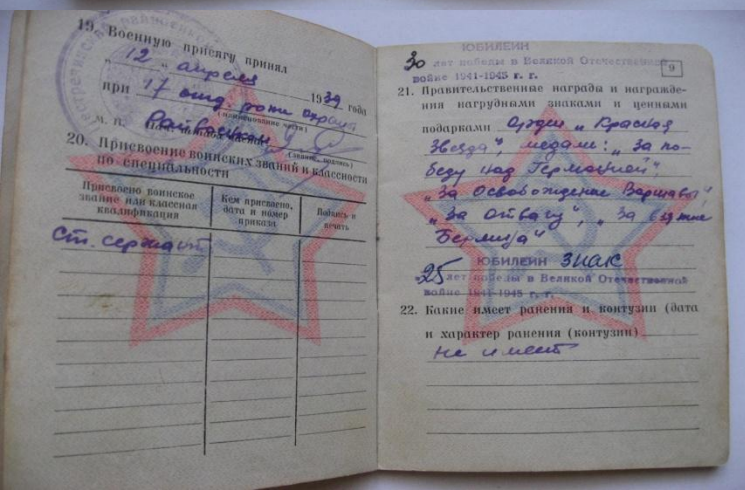 19. Военную присягу принял
"12" апреля 1939 года
при 17 отд. роти охрана
(наименование части)
М. п.
20. Присвоение воинских званий и классности
по специальности
Присвоено воинское
звание или классная
квалификация
Кем присвоено,
дата и номер
приказа
Подпись и
печать
Ст. сержант
ЮБИЛЕЙН
30 лет победы в Великой Отечественной
войне 1941-1945 г. г.
9
21. Правительственные награды и награжде-
ния нагрудными знаками и ценными
подарками Орден "Красная
Звезда", медали: "За по-
беду над Германией"
"За Освобождение Варшавы",
"За отвагу", "За взятие
Берлина"
ЮБИЛЕЙН ЗНАК
25 лет победы в Великой Отечественной
войне 1941-1945 г. г.
22. Какие имеет ранения и контузии (дата
и характер ранения (контузии)
не имеет